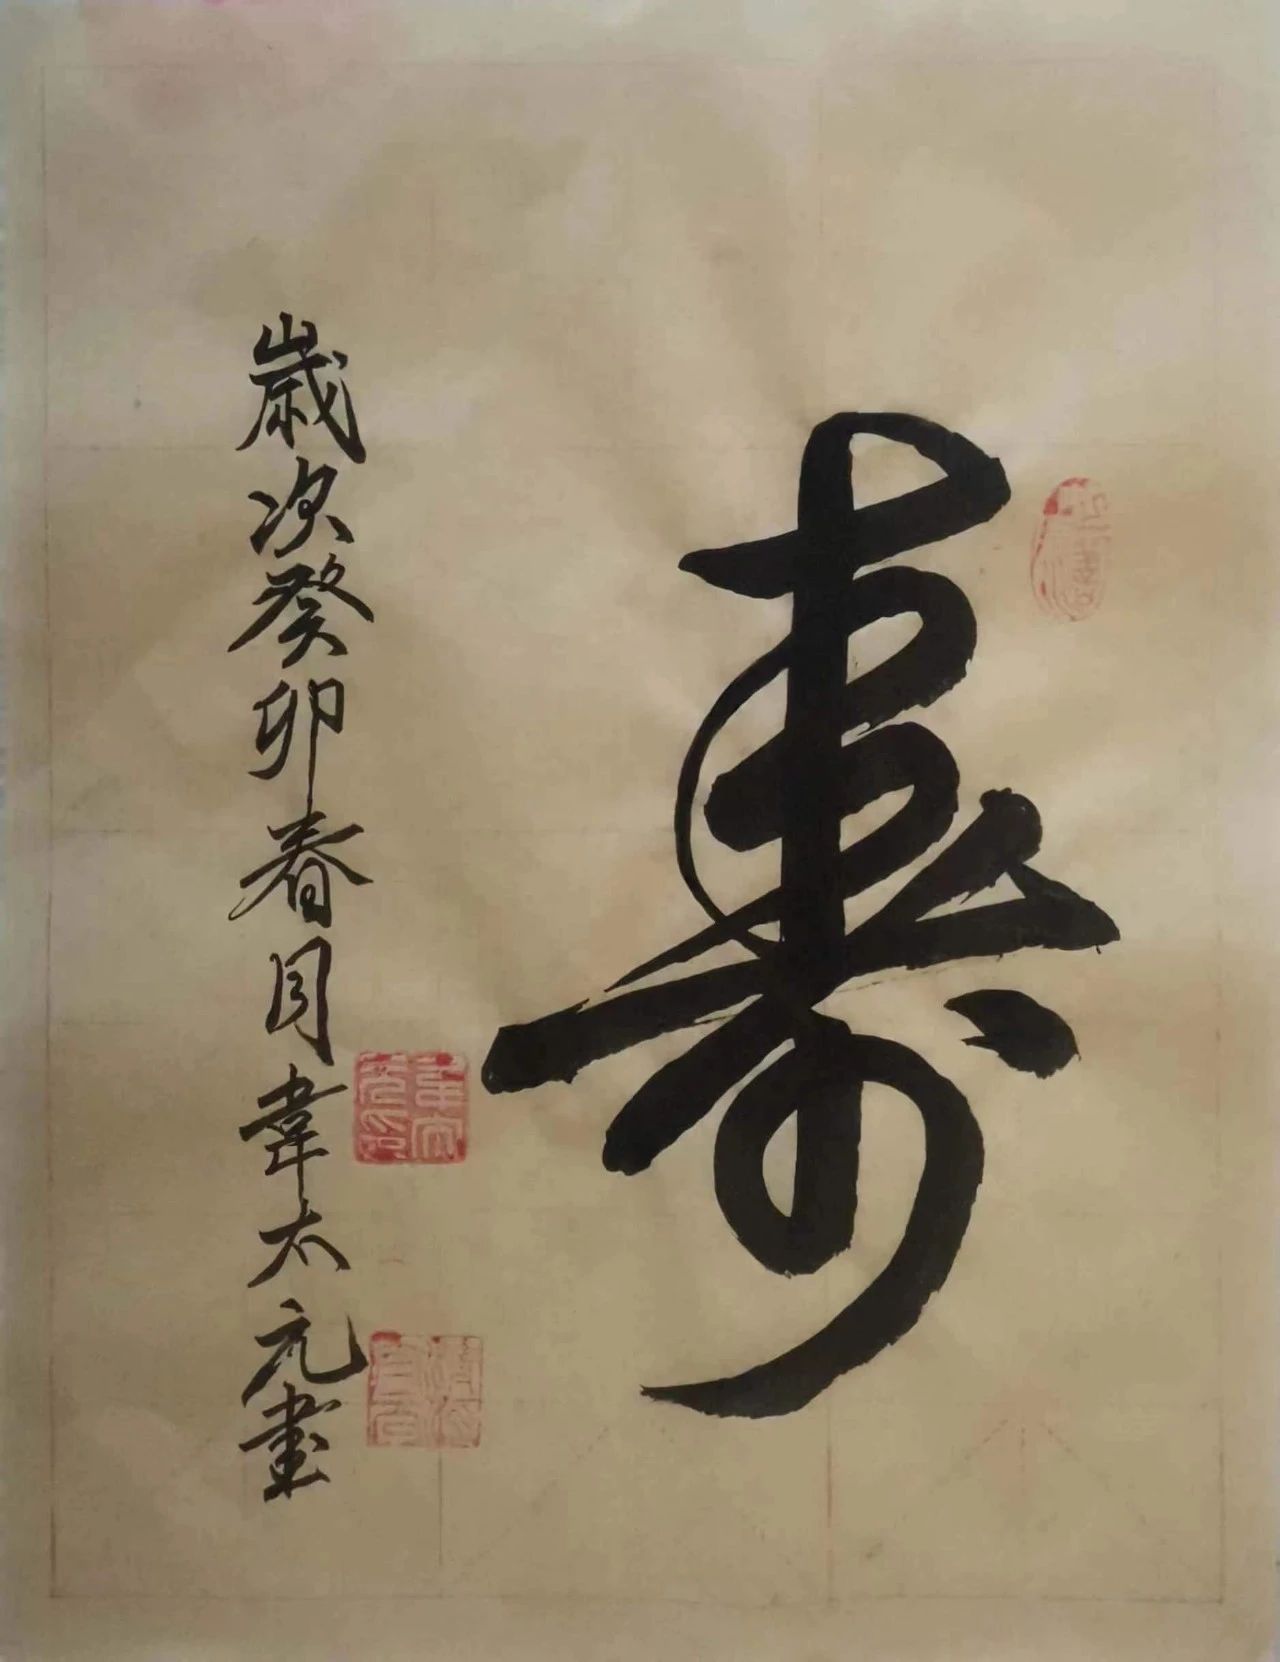 壽
歲次癸卯春月韋太元書